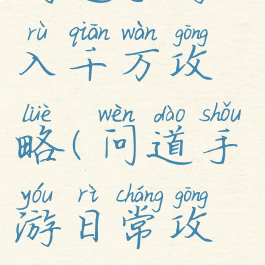 rù qiān wàn gōng
入千万攻
lüè wèn dào shǒu
略(问道手
yóu rì cháng gōng
游日常攻